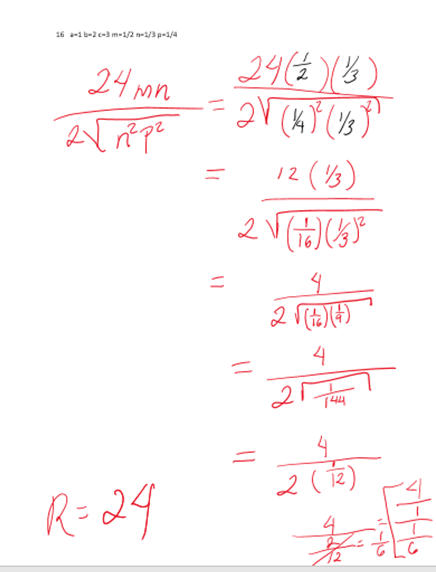 16 a=1 b=2 c=3 m=1/2 n=1/3 p=1/4
24mn / 2√(n²p²) = 24(1/2)(1/3) / 2√((1/4)²(1/3)²)
= 12(1/3) / 2√((1/16)(1/3)²)
= 4 / 2√((1/16)(1/9))
= 4 / 2√(1/144)
= 4 / 2(1/12)
R=24
4 / (2/12) = 1/6 = [4/1 / 1/6